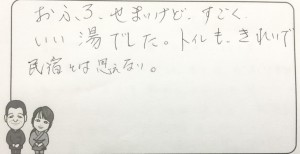 おふろ、せまいけど、すごく
いい湯でした。トイレも、きれいで
民宿とは思えない。